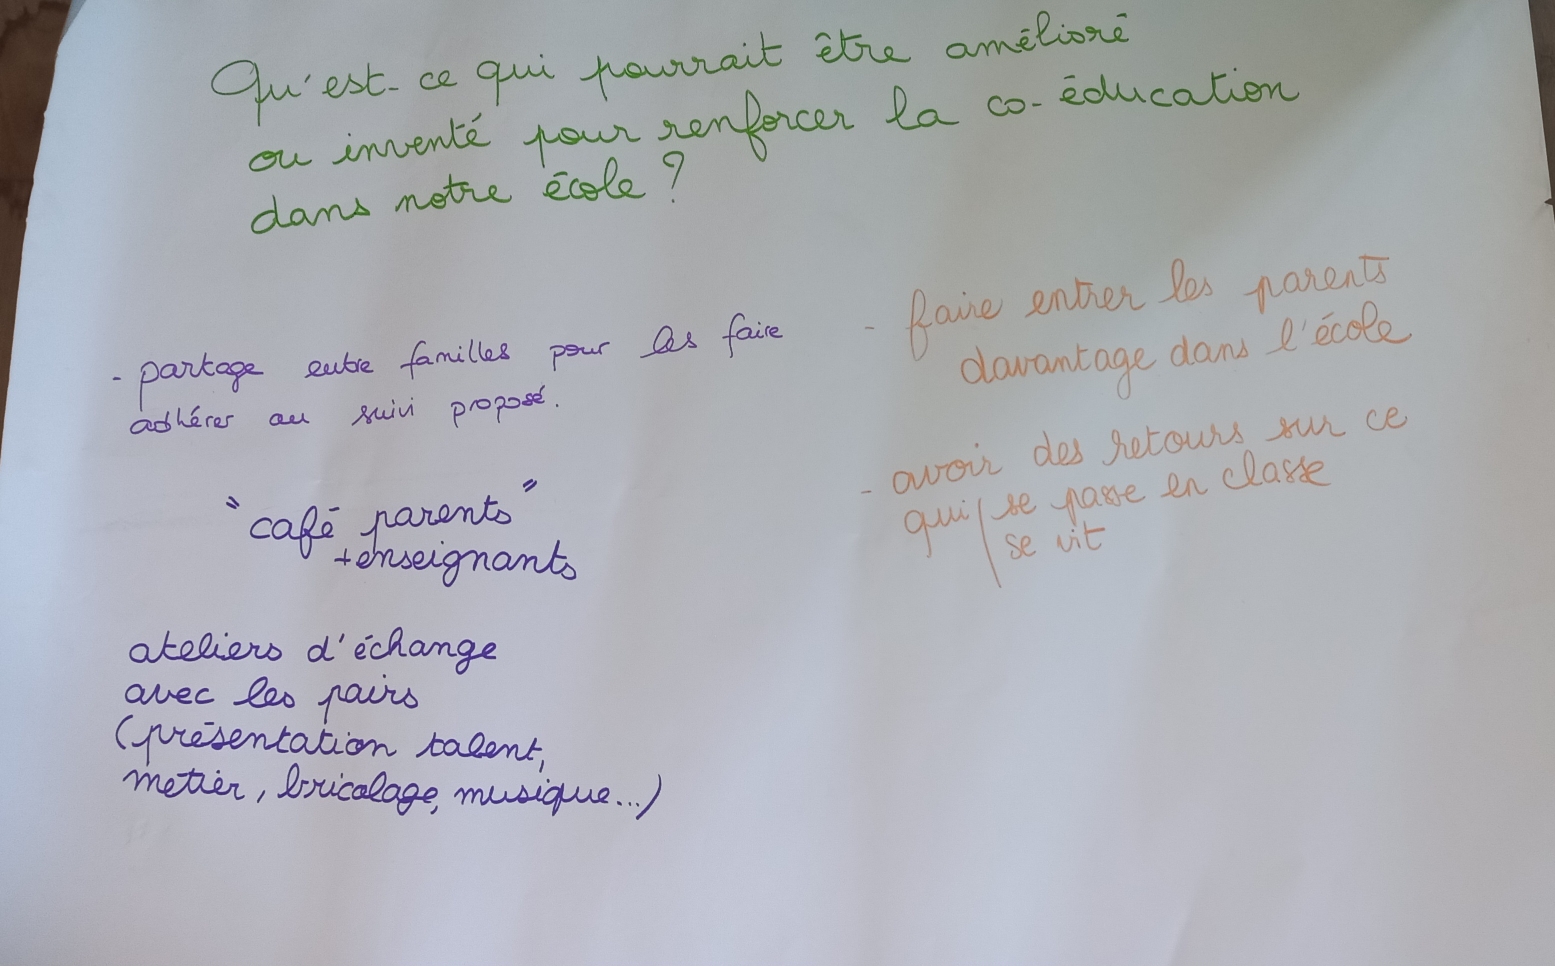 Qu'est-ce qui pourrait être amélioré
ou inventé pour renforcer la co-éducation
dans notre école ?
- partage entre familles pour les faire
adhérer au suivi proposé.
"café parents"
+enseignants
ateliers d'échange
avec les pairs
(présentation talent,
metier, bricolage, musique...)
- faire entrer les parents
davantage dans l'école
- avoir des retours sur ce
qui / se passe en classe
se vit